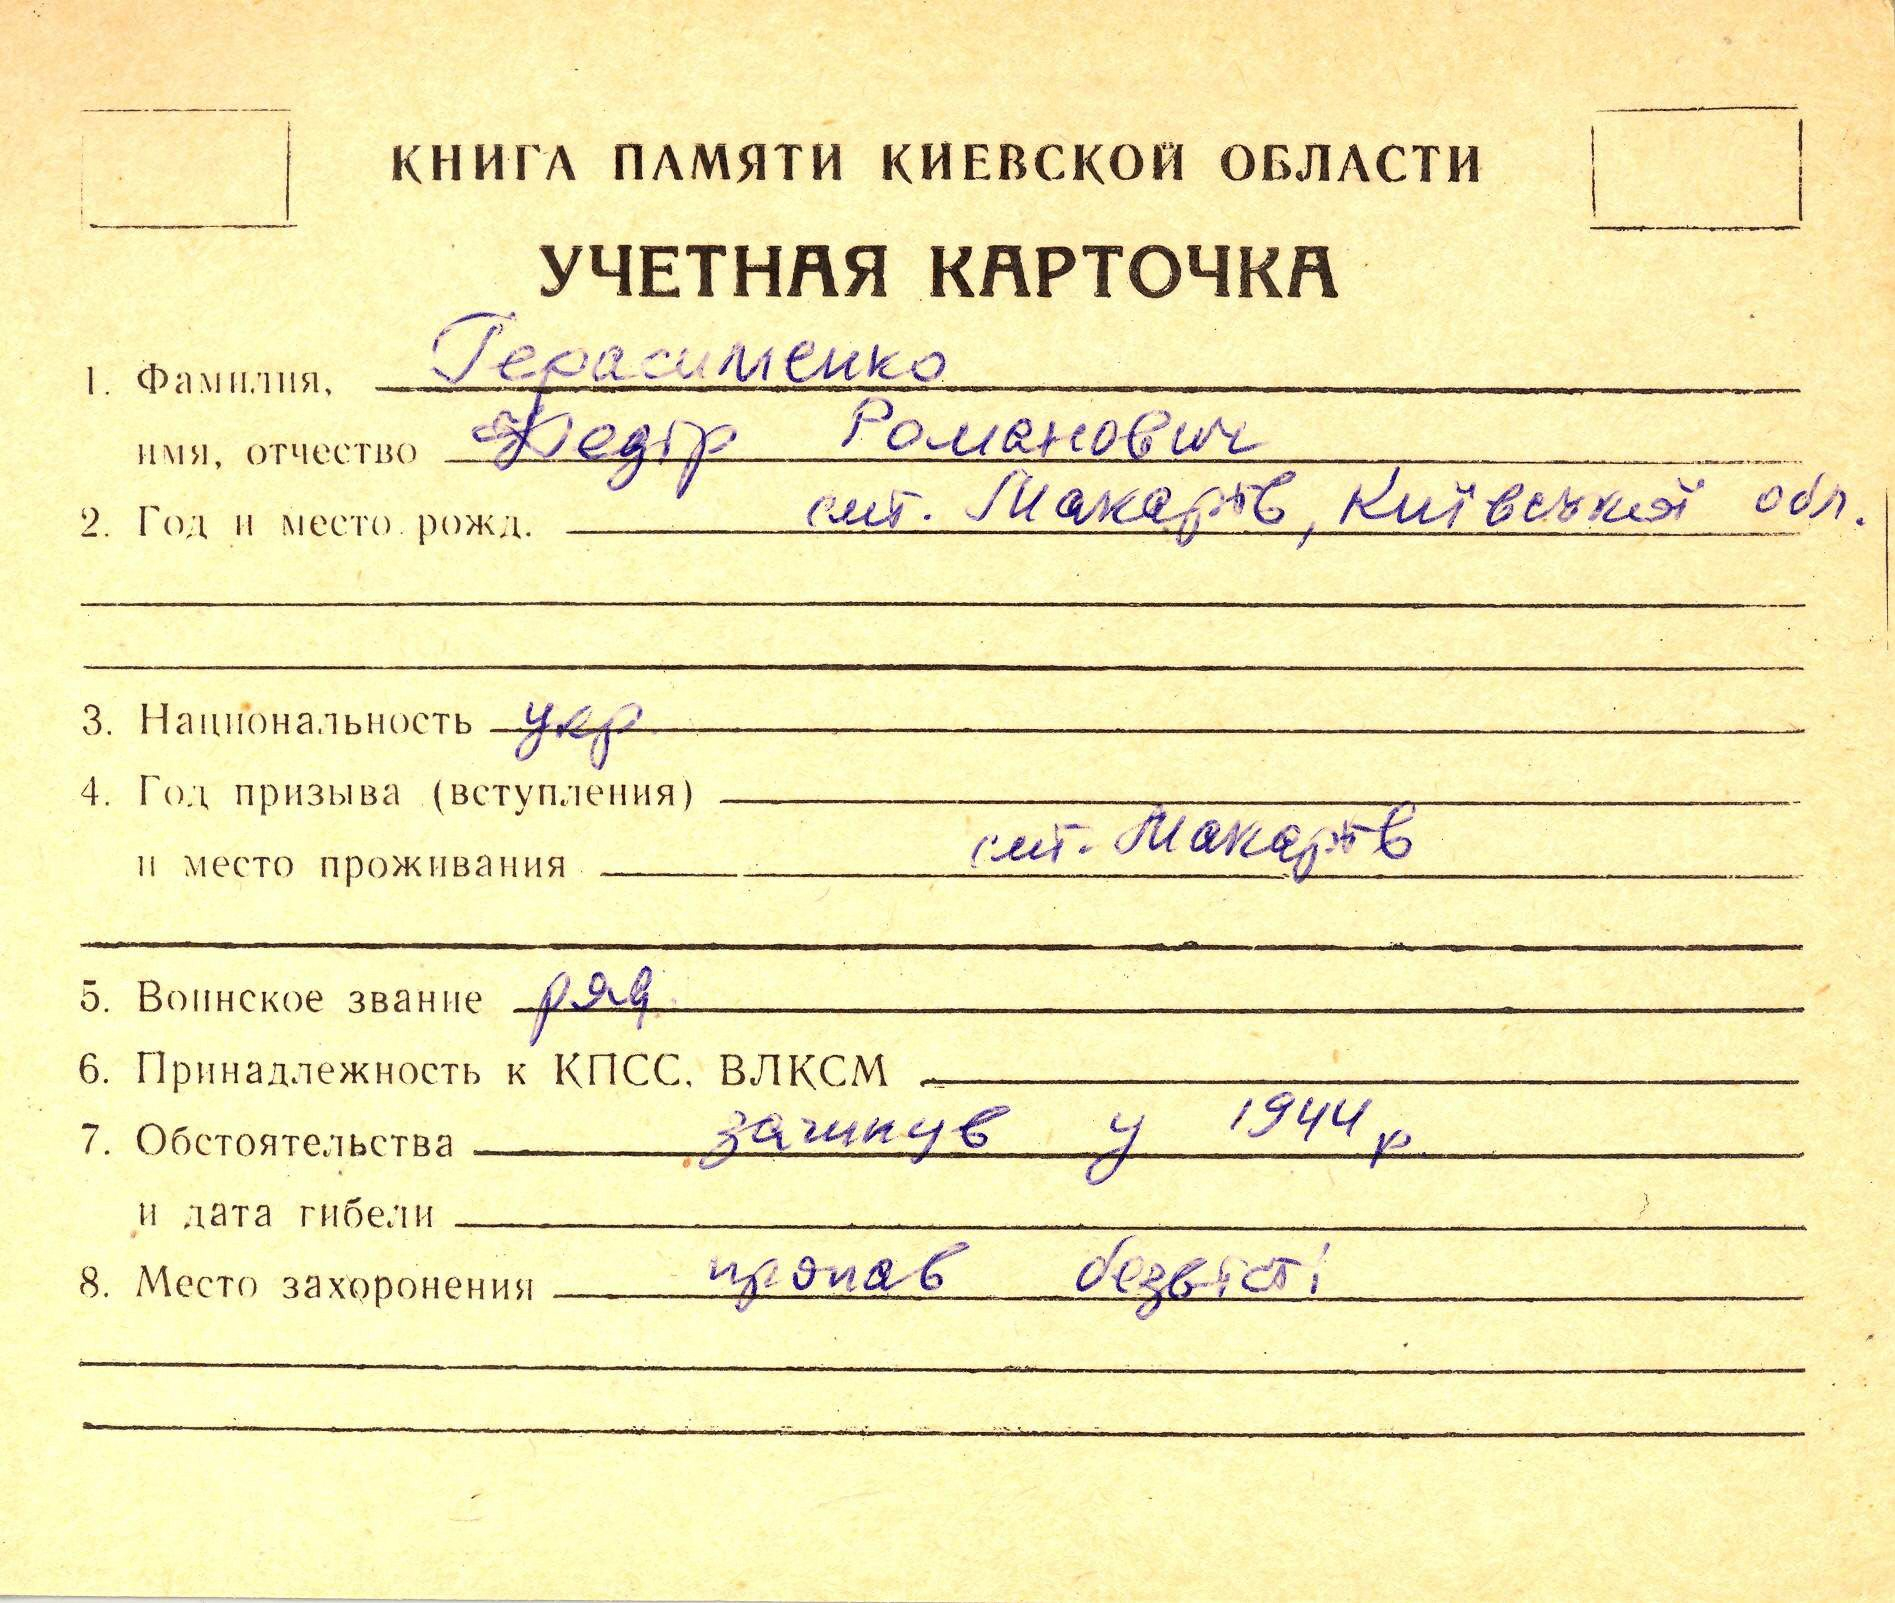 КНИГА ПАМЯТИ КИЕВСКОЙ ОБЛАСТИ
УЧЕТНАЯ КАРТОЧКА
1. Фамилия, Герасименко
имя, отчество Федір Романович
2. Год и место рожд. смт. Макарів, Київської обл.
3. Национальность укр
4. Год призыва (вступления)
и место проживания смт. Макарів
5. Воинское звание ряд.
6. Принадлежность к КПСС, ВЛКСМ
7. Обстоятельства загинув у 1944 р.
и дата гибели
8. Место захоронения пропав безвісті